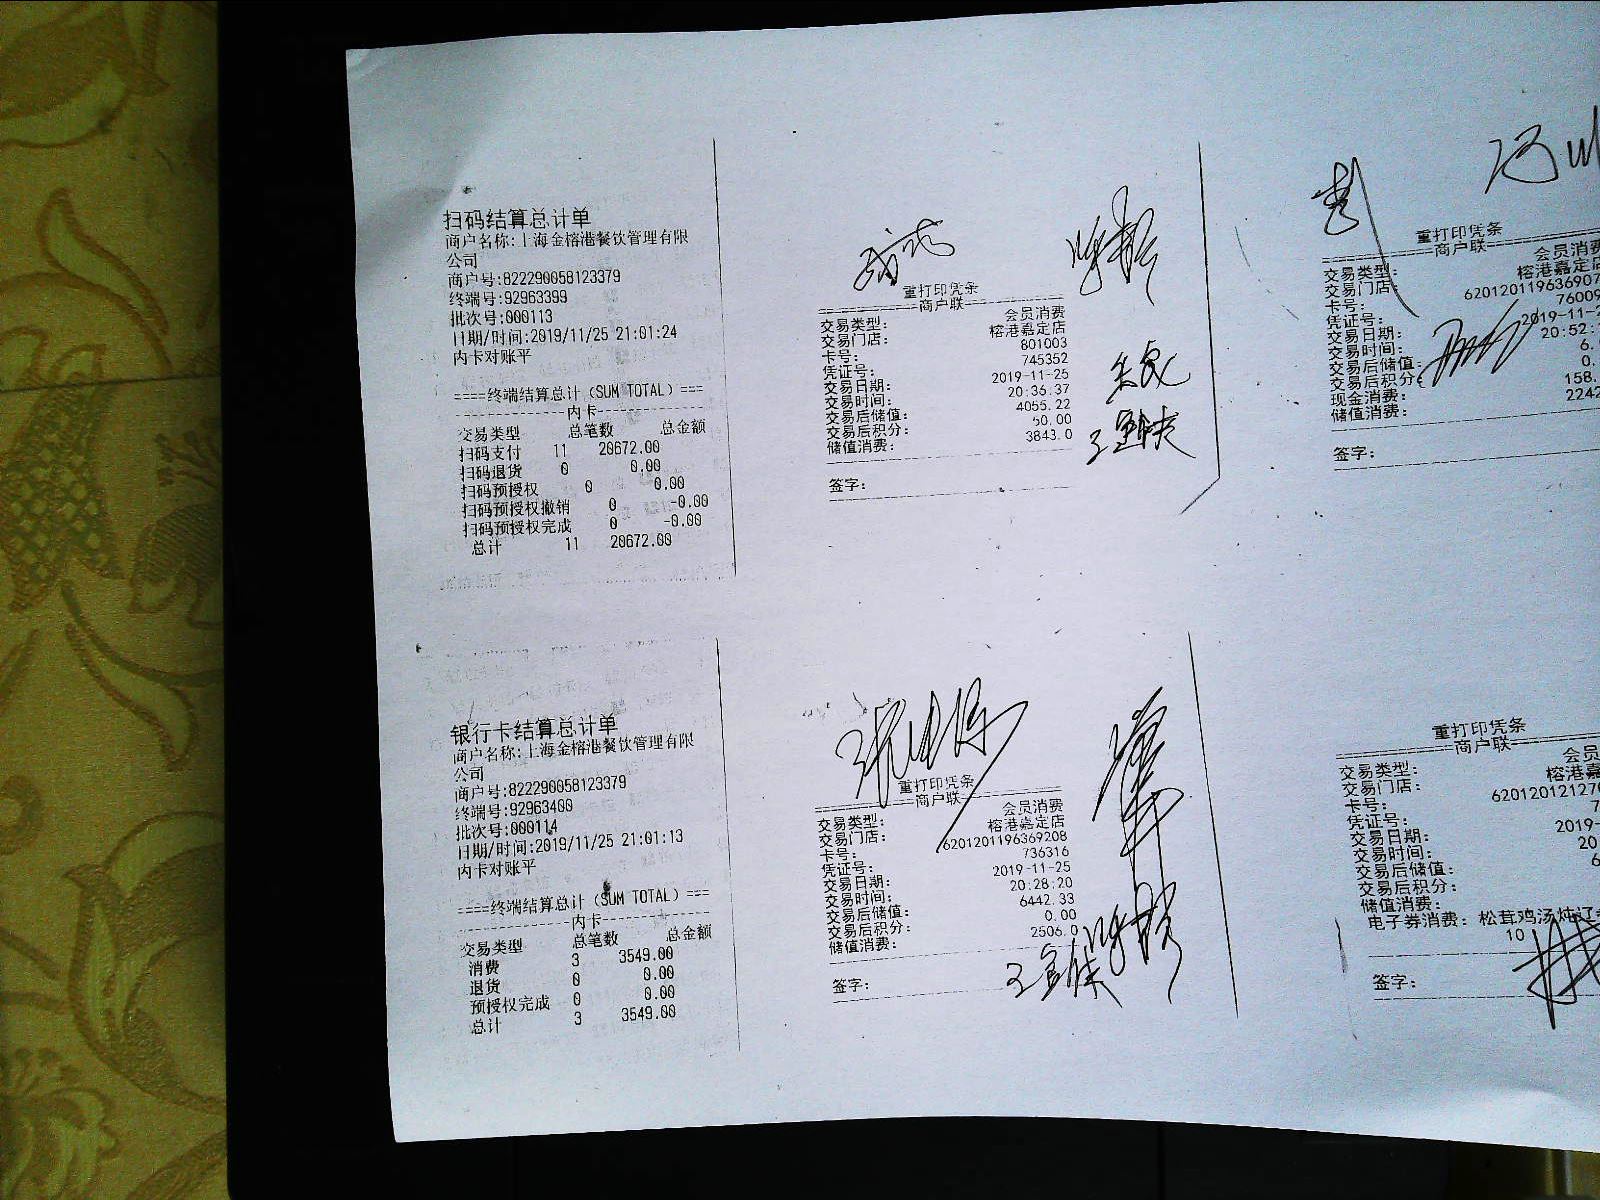 扫码结算总计单
商户名称:上海金榕港餐饮管理有限
公司
商户号:822290058123379
终端号:92963399
批次号:000113
日期/时间:2019/11/25 21:01:24
内卡对账平
====终端结算总计(SUM TOTAL)===
内卡
交易类型 总笔数 总金额
扫码支付 11 20672.00
扫码退货 0 0.00
扫码预授权 0 0.00
扫码预授权撤销 0 -0.00
扫码预授权完成 0 -0.00
总计 11 20672.00
重打印凭条
商户联
交易类型: 会员消费
交易门店: 榕港嘉定店
卡号: 801003
凭证号: 745352
交易日期: 2019-11-25
交易时间: 20:36:37
交易后储值: 4055.22
交易后积分: 50.00
储值消费: 3843.0
签字:
重打印凭条
商户联
交易类型: 会员消费
交易门店: 榕港嘉定店
卡号: 620120119636907
凭证号: 76009
交易日期: 2019-11-2
交易时间: 20:52:
交易后储值: 6.
交易后积分: 0.
现金消费: 158.
储值消费: 2242
签字:
银行卡结算总计单
商户名称:上海金榕港餐饮管理有限
公司
商户号:822290058123379
终端号:92963400
批次号:000114
日期/时间:2019/11/25 21:01:13
内卡对账平
====终端结算总计(SUM TOTAL)===
内卡
交易类型 总笔数 总金额
消费 3 3549.00
退货 0 0.00
预授权完成 0 0.00
总计 3 3549.00
重打印凭条
商户联
交易类型: 会员消费
交易门店: 榕港嘉定店
卡号: 6201201196369208
凭证号: 736316
交易日期: 2019-11-25
交易时间: 20:28:20
交易后储值: 6442.33
交易后积分: 0.00
储值消费: 2506.0
签字:
重打印凭条
商户联
交易类型: 会员
交易门店: 榕港嘉
卡号: 620120121270
凭证号: 7
交易日期: 2019-
交易时间: 20
交易后储值: 6
交易后积分:
储值消费:
电子券消费: 松茸鸡汤炖辽
10
签字: